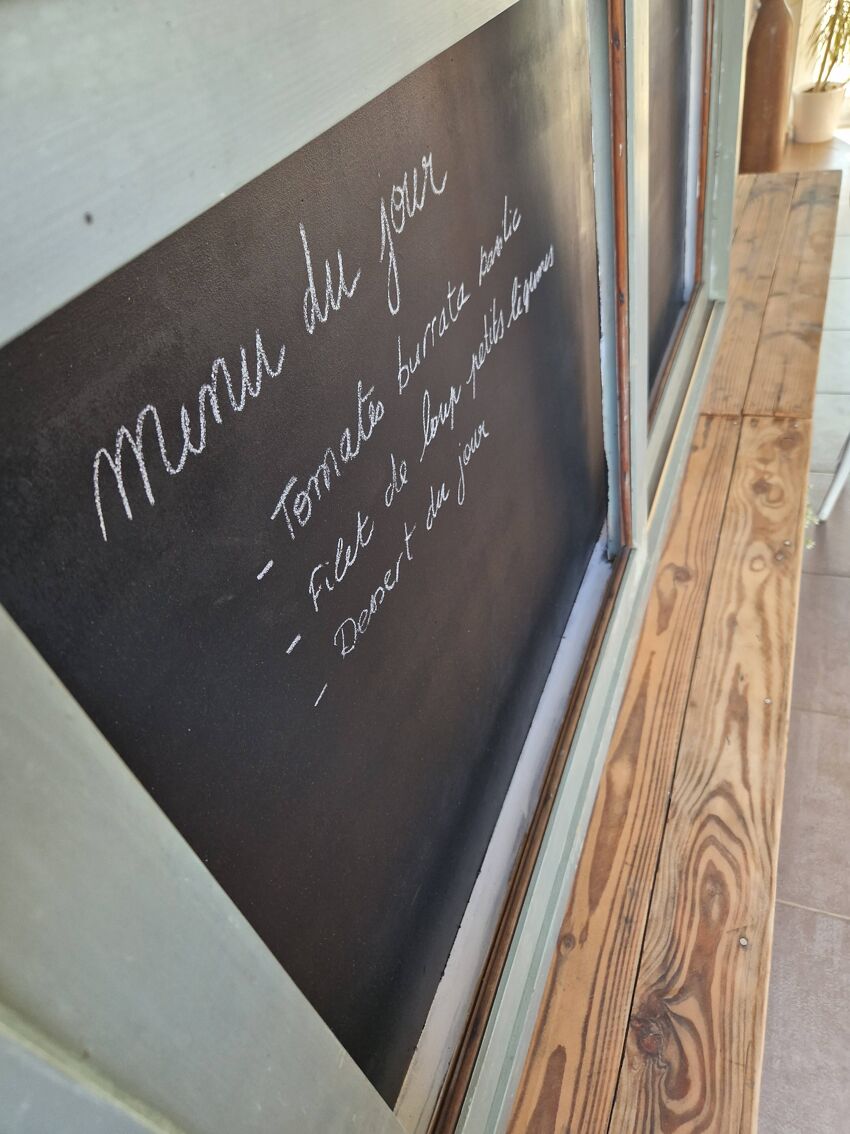 Menu du jour
- Tomates burrata basilic
- Filet de loup petits légumes
- Dessert du jour